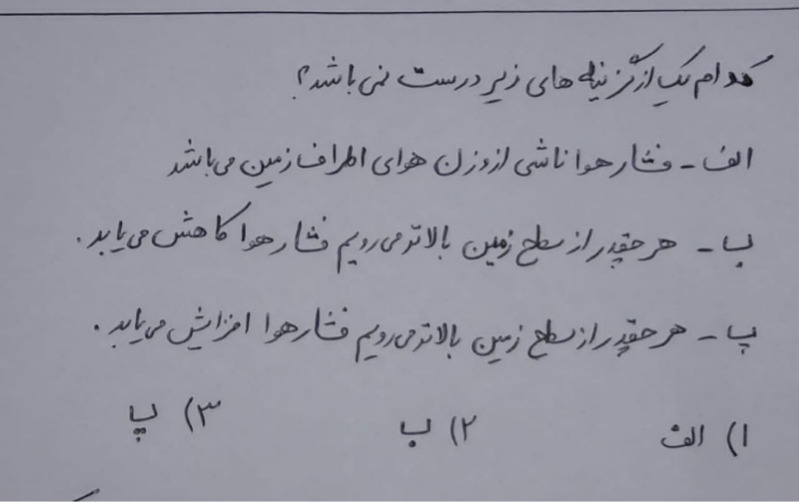 کدام یک از گزینه های زیر درست نمی باشد؟
الف - فشار هوا ناشی از وزن هوای اطراف زمین می باشد
ب - هر چقدر از سطح زمین بالاتر می رویم فشار هوا کاهش می یابد.
پ - هر چقدر از سطح زمین بالاتر می رویم فشار هوا افزایش می یابد.
۱) الف ۲) ب ۳) پ